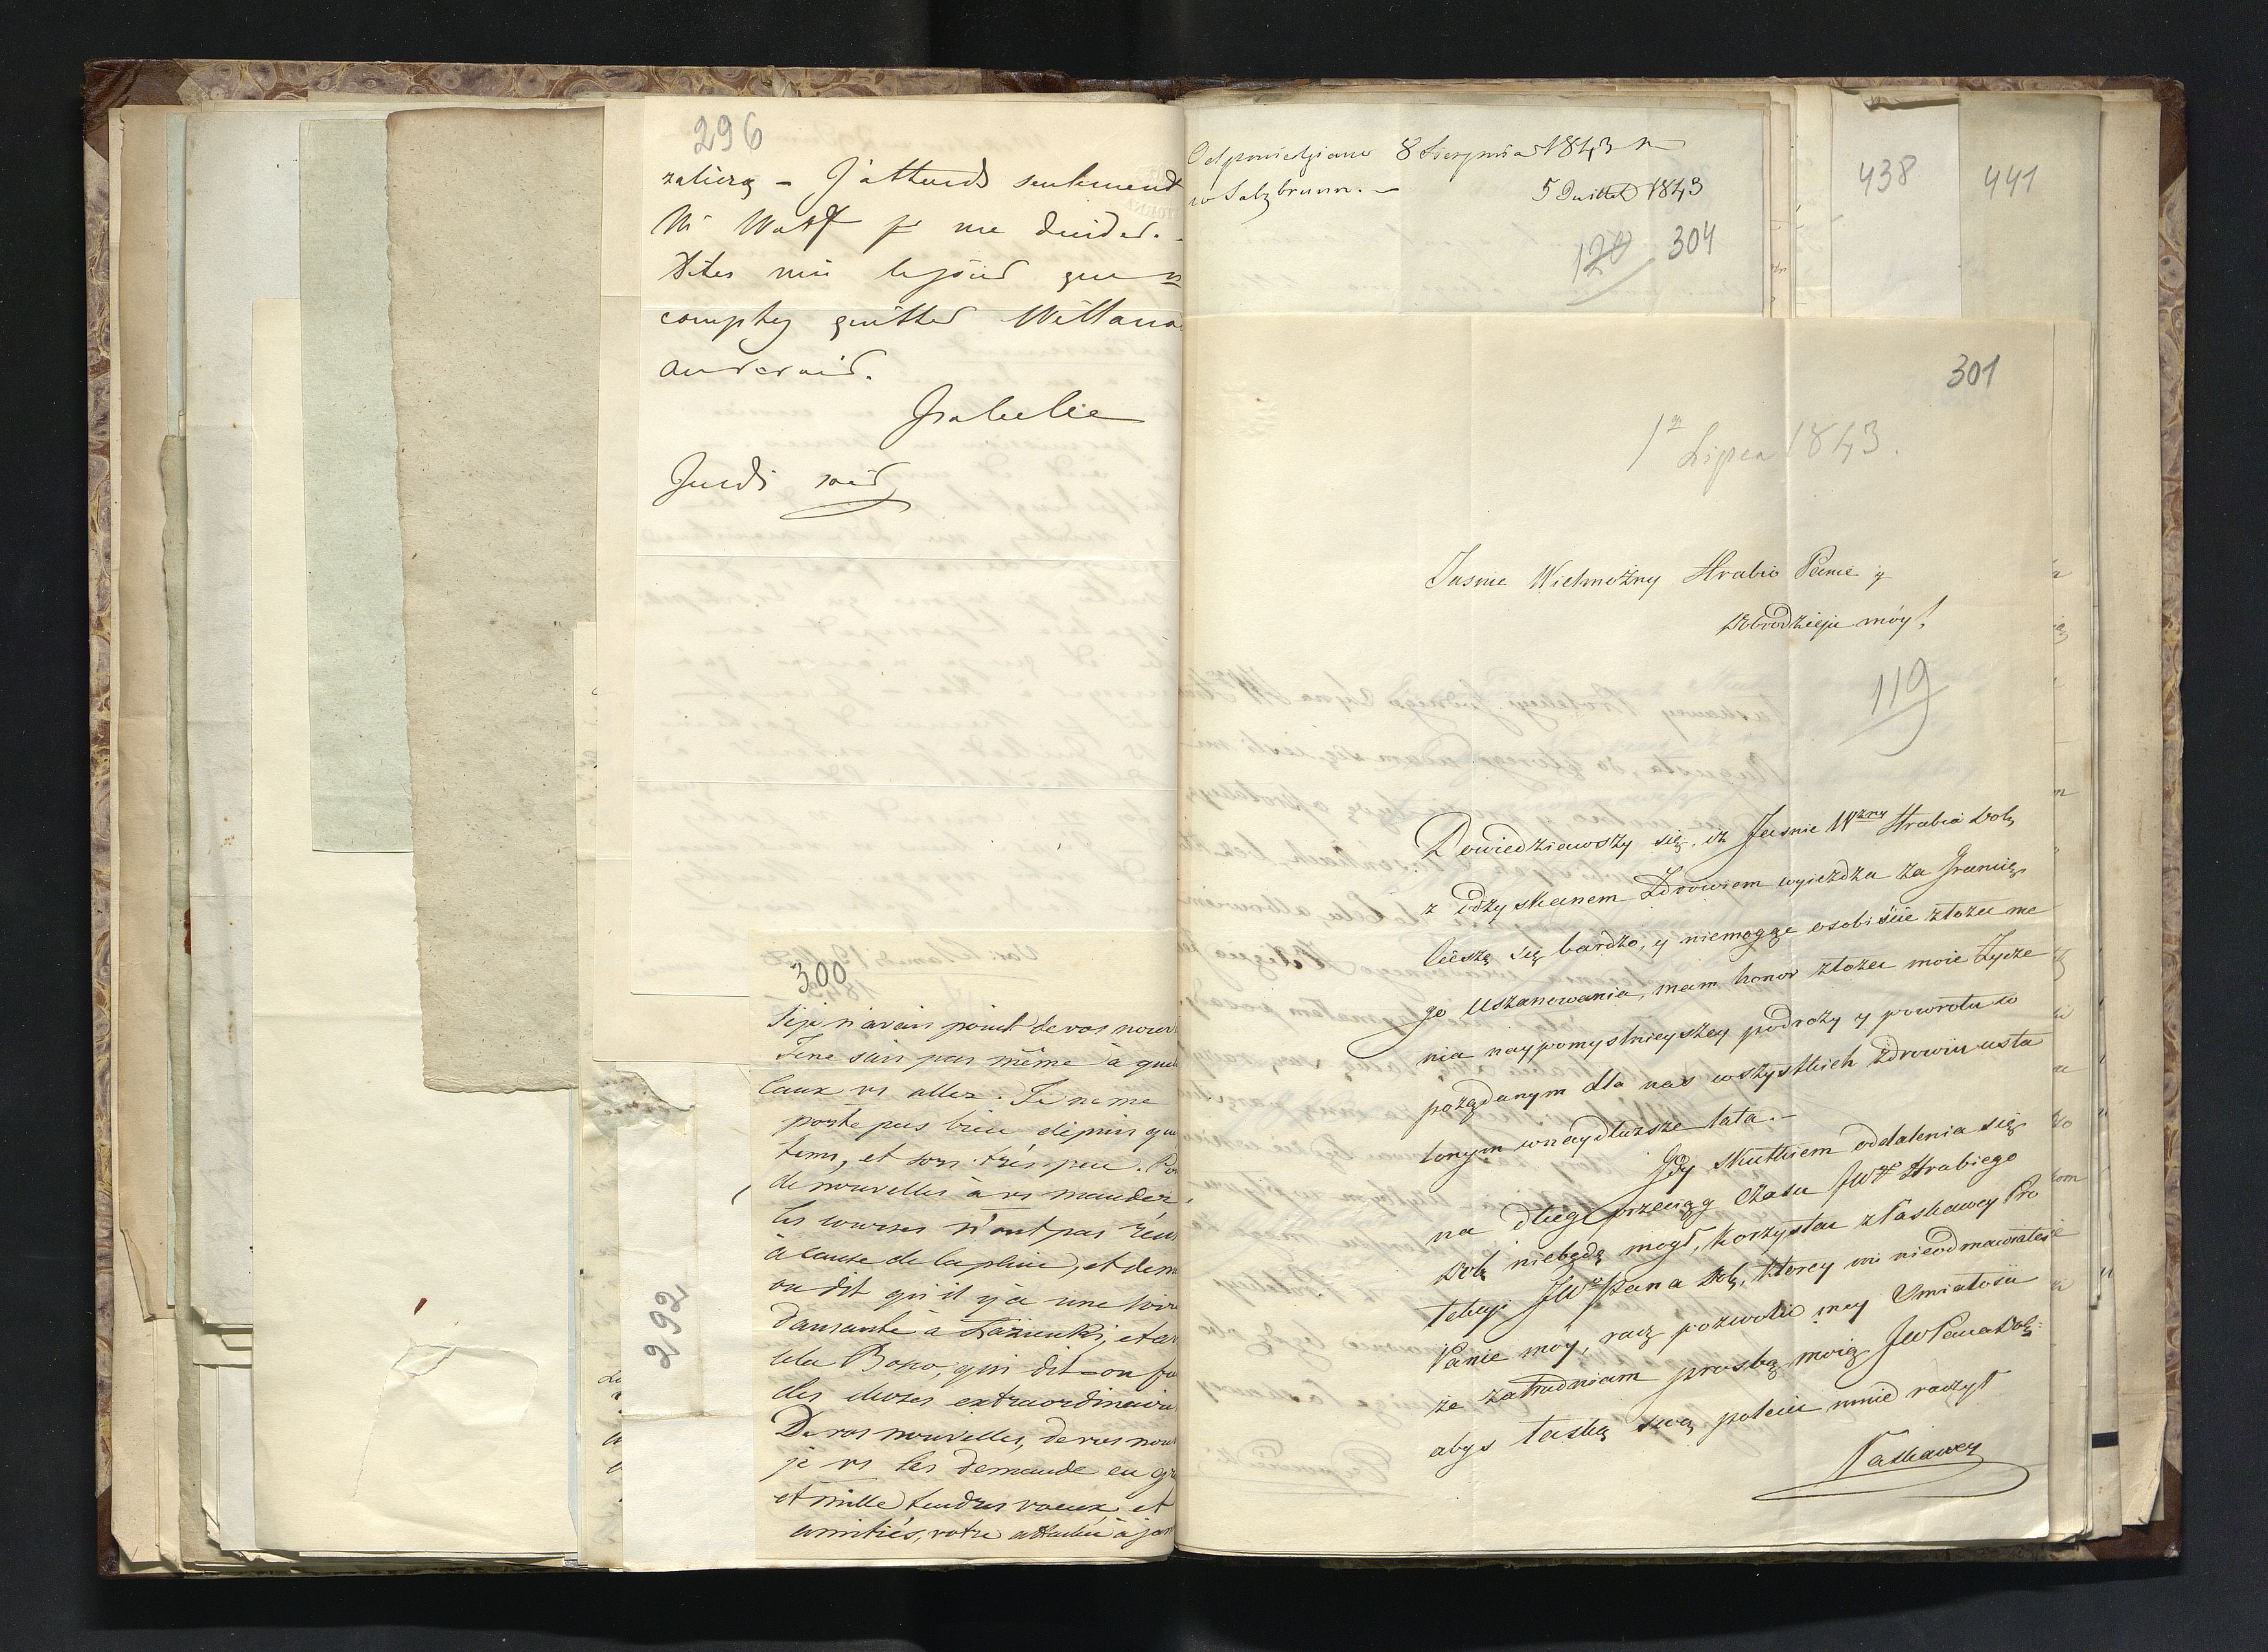 296
zaliczą – J'attends seulement
Mr Wolff pr me décider. –
Dites moi le jour que vs
comptez quitter Willano
au revoir.
Isabelle
Jeudi soir
300
si je n'avais point de vos nouv
Je ne sais pas même à que
Eaux vs allez. Je ne me
porte pas bien depuis que
tems, et sors très peu. Po
de nouvelles à vs mander,
les courses n'ont pas réu
à cause de la pluie, et dem
on dit qu'il y a une soiré
dansante à Łazienki, et a
ula Bosco, qui dit-on fa
des choses extraordinaire
De vos nouvelles, de vos nou
je vs les demande en gr
et mille tendres voeux et
amitiés, votre attachée à jam
292
Odpowiedziano 8 Sierpnia 1843 r
w Salzbrunn. –
5 Juillet 1843
120 304
438
441
301
1 Lipca 1843.
Jasnie Wielmożny Hrabio Panie y
Dobrodzieju móy!
119
Dowiedziawszy się, iż Jasnie Wżny Hrabia Dob,
z odzyskanem Zdrowiem wyieżdża za Granicę,
cieszę się bardzo, y niemogąc osobiście złożyć me
go Uszanowania, mam honor złożyć moie Życze
nia naypomyslnieyszey podroży y powrotu w
pożądanym dla nas wszystkich zdrowiu usta
lonym w naydłuższe lata. –
Gdy skutkiem oddalenia się
na długi przeciąg Czasu JWo Hrabiego
Dob, niebędę mogł, Korzystać z Łaskawey Pro
tekcji JWo Pana Dob, ktorey mi nieodmawiałeś
Panie moy, racz pozwolić mey Smiałości
że zatrudniam prosbą moią JW Pana Dob:
abys łaską swą polecić mnie raczył
Łaskawey